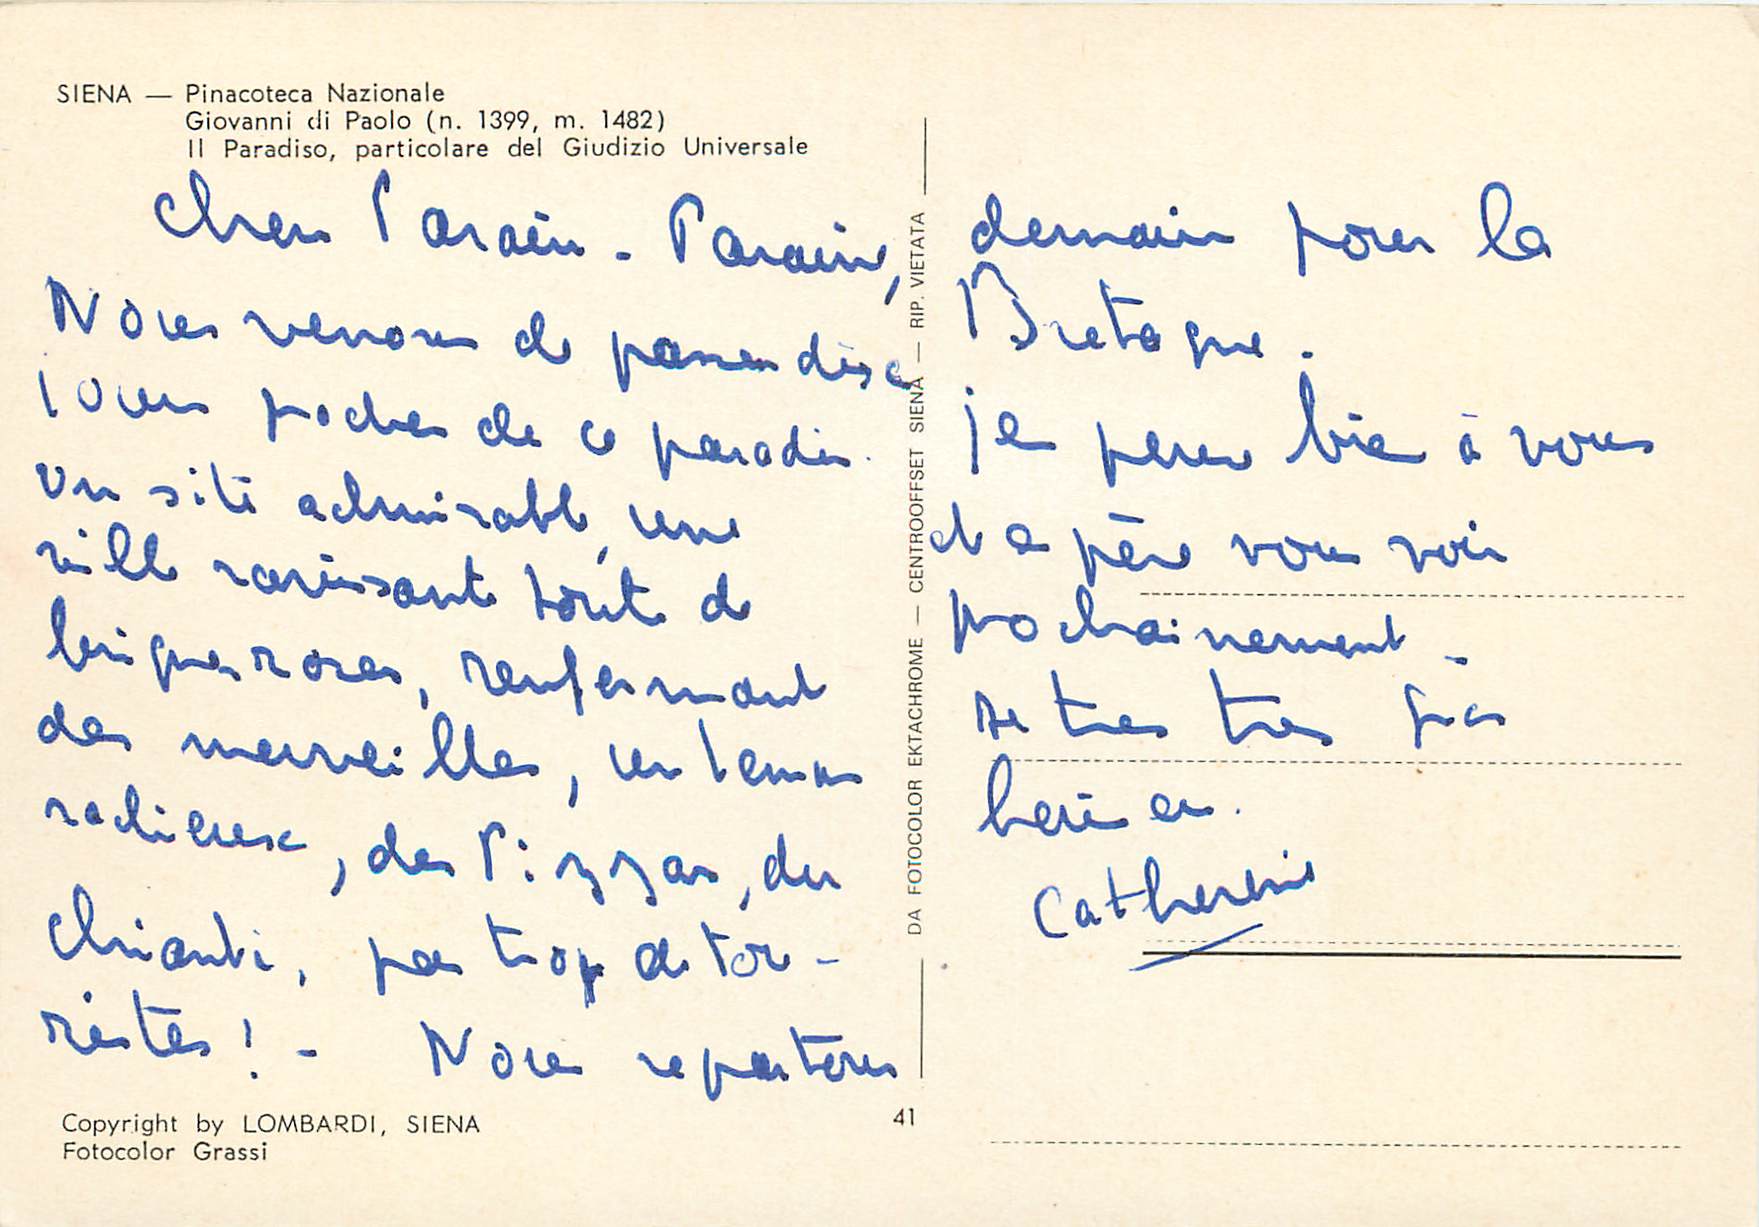 SIENA — Pinacoteca Nazionale
Giovanni di Paolo (n. 1399, m. 1482)
Il Paradiso, particolare del Giudizio Universale
Cher Parain - Paraine,
Nous venons de passer dix
jours proches de ce paradis.
Un site admirable, une
ville ravissante toute de
briques roses, renfermant
des merveilles, un temps
radieux, des Pizzas, du
Chianti, pas trop de tou-
ristes! - Nous repartons
demain pour la
Bretagne.
Je pense bien à vous
et espère vous voir
prochainement -
de très très gros
baisers.
Catherine
DA FOTOCOLOR EKTACHROME — CENTROOFFSET SIENA — RIP. VIETATA
Copyright by LOMBARDI, SIENA
Fotocolor Grassi
41